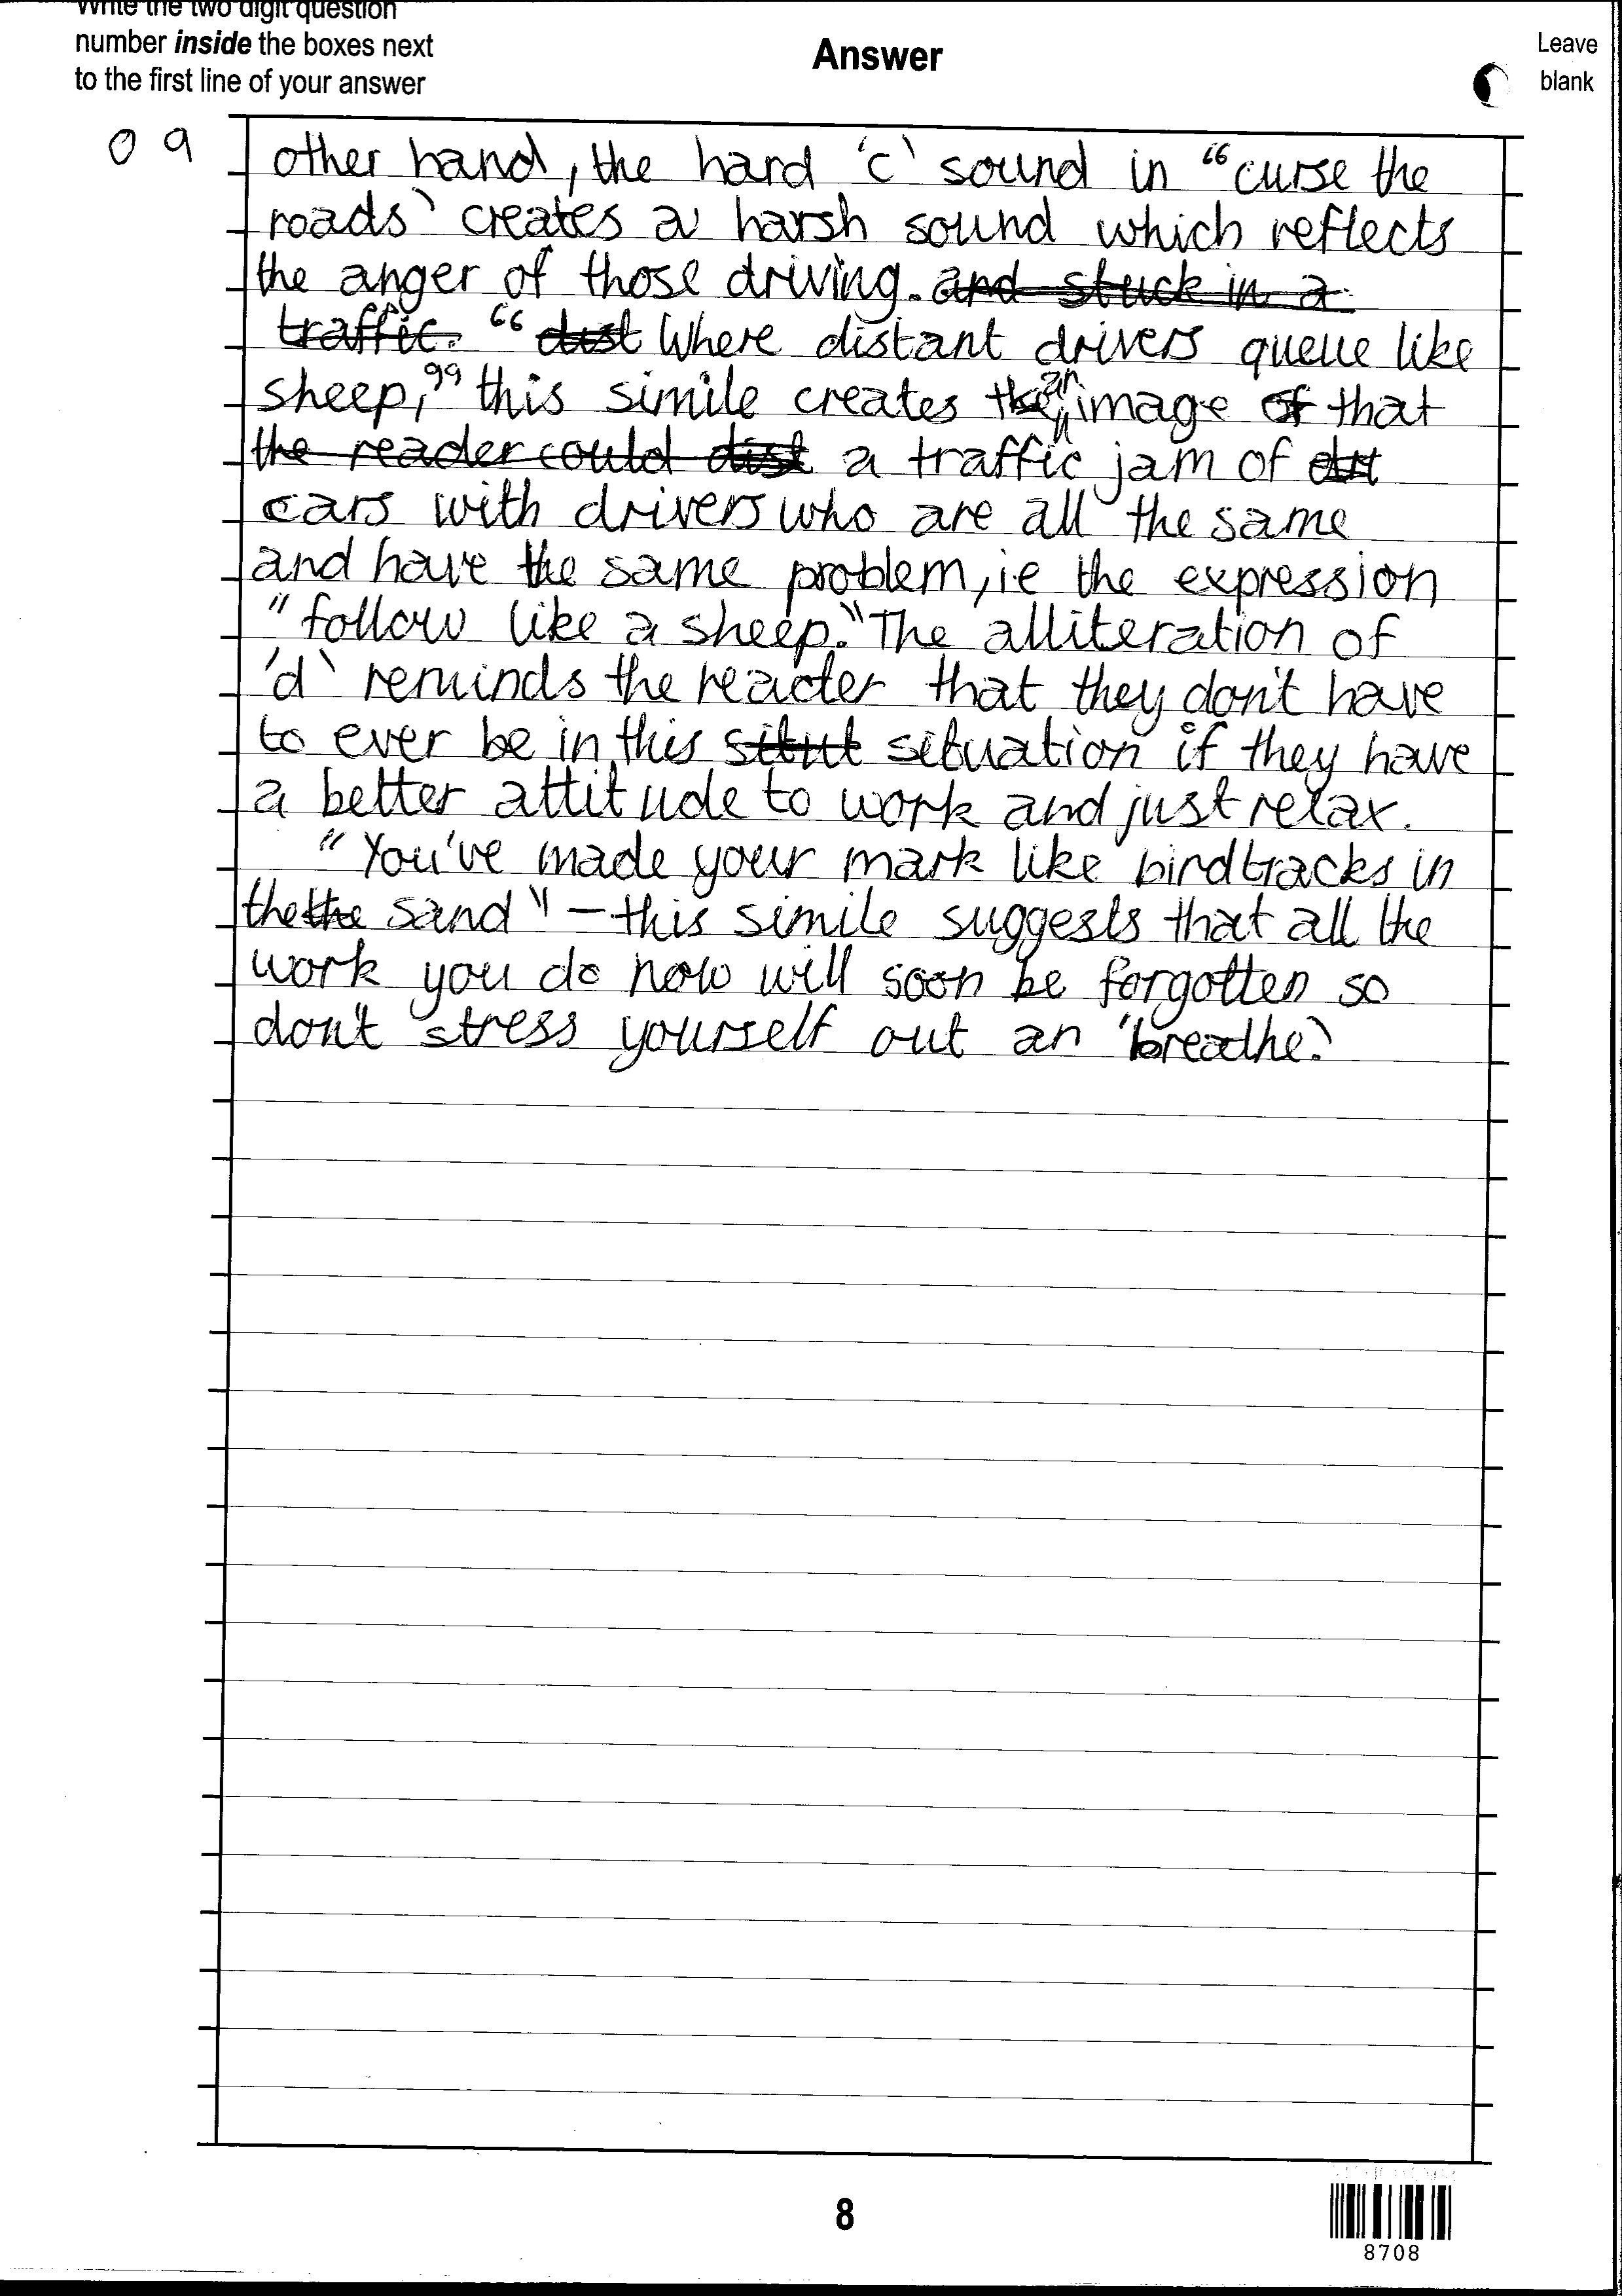 Write the two digit question
number inside the boxes next
to the first line of your answer
Answer
Leave
blank
0 9
other hand, the hard 'c' sound in "curse the
roads' creates a harsh sound which reflects
the anger of those driving. and stuck in a
traffic. " dist Where distant drivers queue like
sheep," this simile creates the an image of that
the reader could dist a traffic jam of
cars with drivers who are all the same
and have the same problem, ie the expression
"follow like a sheep." The alliteration of
'd' reminds the reader that they don't have
to ever be in this situt situation if they have
a better attitude to work and just relax.
"You've made your mark like birdtracks in
the the sand" – this simile suggests that all the
work you do now will soon be forgotten so
don't stress yourself out an 'breathe.'
8
8708